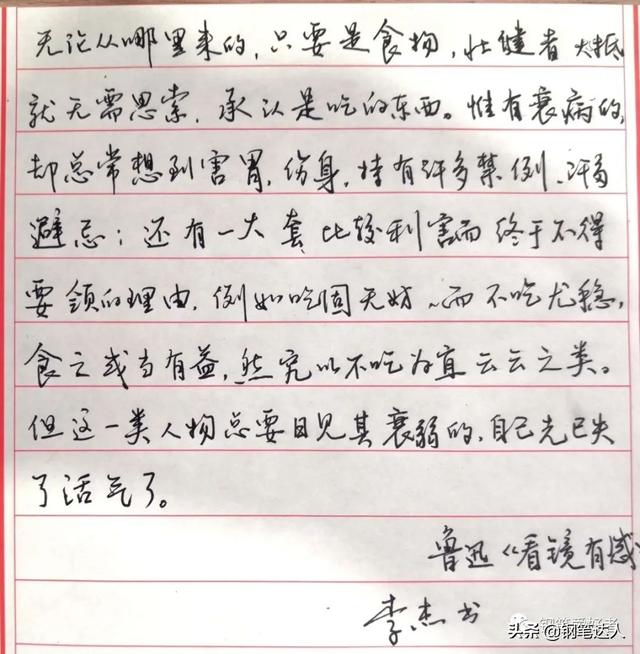 无论从哪里来的,只要是食物,壮健者大抵
就无需思索,承认是吃的东西。惟有衰病的,
却总常想到害胃,伤身,特有许多禁例,许多
避忌;还有一大套比较利害而终于不得
要领的理由,例如吃固无妨,而不吃尤稳,
食之或当有益,然究以不吃为宜云云之类。
但这一类人物总要日见其衰弱的,自己先已失
了活气了。
鲁迅《看镜有感》
李杰书
钢笔爱好者
头条@钢笔达人